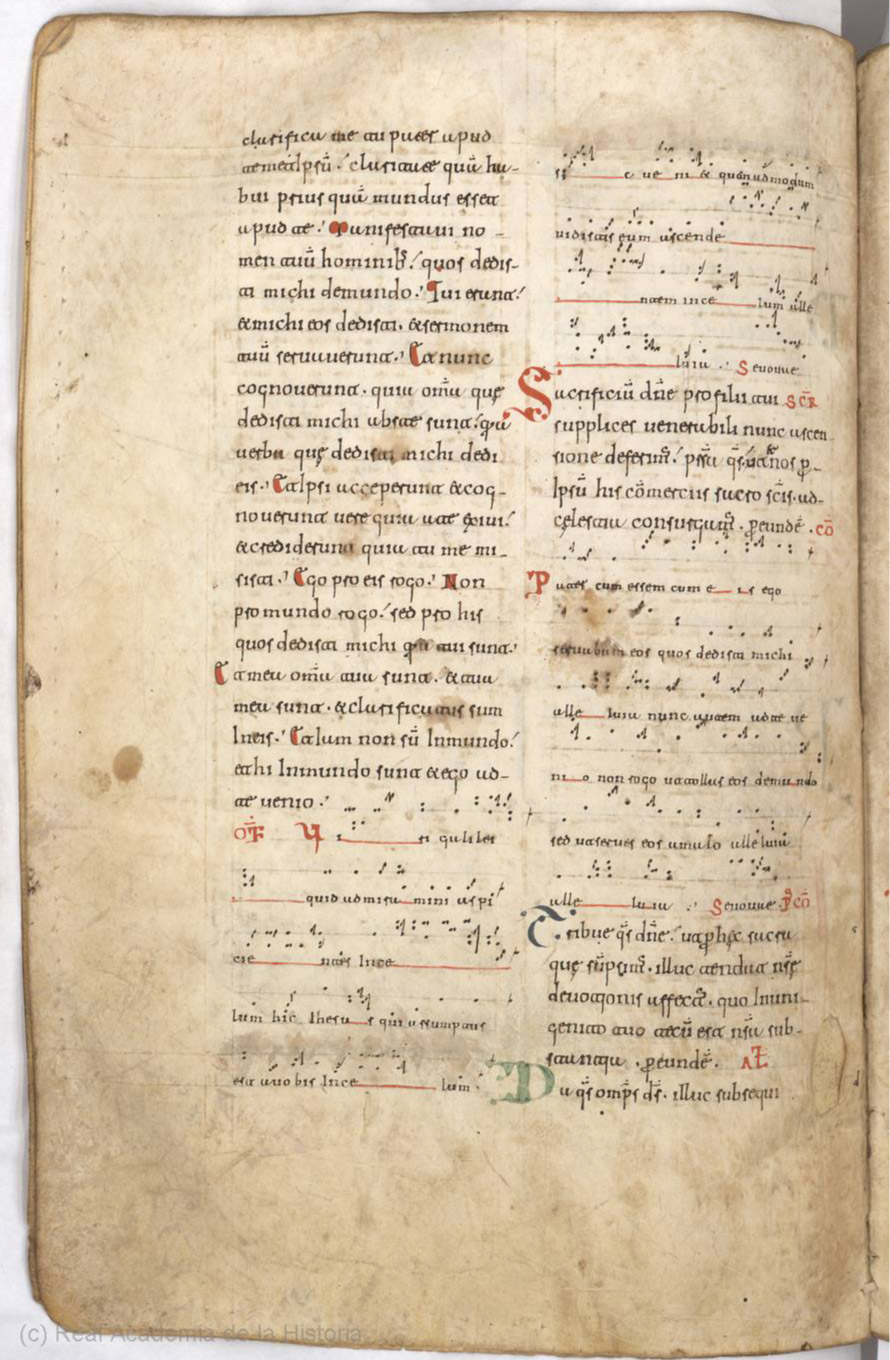 clarifica me tu pater apud
temetipsū. claritate quā ha-
bui prius quā mundus esset
apud te. Manifestaui no-
men tuū hominib; quos dedis-
ti michi demundo. Tui erant.
&michi eos dedisti. &sermonem
tuū seruauerunt. Et nunc
cognouerunt. quia om̄a que
dedisti michi abste sunt. quia
uerba quę dedisti michi dedi
eis. Et ipsi acceperunt &cog-
nouerunt uere quia a te exiui.
&crediderunt quia tu me mi-
sisti. Ego pro eis rogo. Non
pro mundo rogo. sed pro his
quos dedisti michi quia tui sunt.
Et mea om̄a tua sunt. & tua
mea sunt. &clarificatus sum
Ineis. Et iam non sū Inmundo.
et hi Inmundo sunt &ego ad
te uenio.
OF Vi ri galilei
quid admira mini aspi
cie ntes Ince
lum hic Ihesu s qui assumptus
est auobis Ince lum.
si c ue ni & quenadmodum
uidistis eum ascende
ntem ince lum alle
luia. Seuouae
Sacrificiū dn̄e pro filii tui SCR
supplices uenerabili nunc ascen
sione deferim̄. psta q̄s. ut &nos p
Ipsū his cōmerciis sacro scīs. ad
cęlestia consurgam̄. p eunde. cō
Pater cum essem cum e is ego
seruabam eos quos dedisti michi
alle luia nunc autem ad te ue
ni o non rogo ut tollas eos demundo
sed ut serues eos amalo alleluia
alle luia. Seuouae. p̄ cō
Tribue q̄s dn̄e. ut p hęc sacra
que sūpsim̄. illuc tendat nr̄ę
deuotionis affect̄. quo Inuni-
genito tuo tecū est nr̄a sub-
stantia. p eunde. AL
Da q̄s omp̄s ds̄. illuc subsequi
(c) Real Academia de la Historia